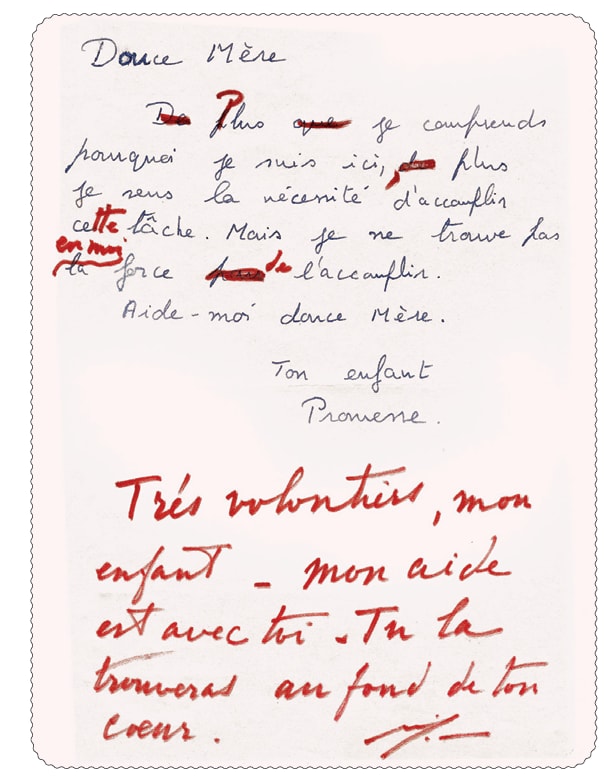 Douce Mère
Plus je comprends
pourquoi je suis ici, plus
je sens la nécessité d'accomplir
cette tâche. Mais je ne trouve pas
en moi
la force de l'accomplir.
Aide-moi douce Mère.
Ton enfant
Promesse.
Trés volontiers, mon
enfant - mon aide
est avec toi. Tu la
trouveras au fond de ton
cœur.